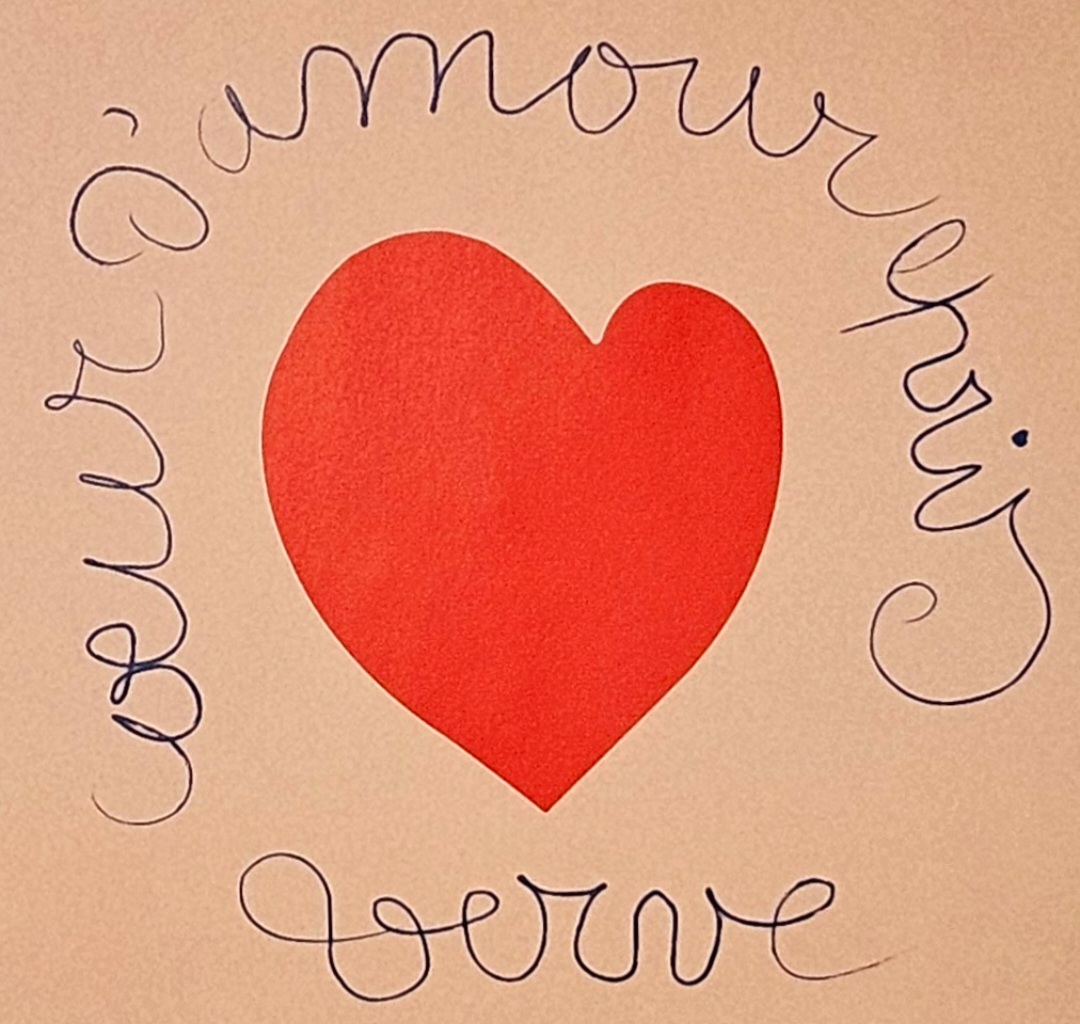 cœur d'amour épris
Verve